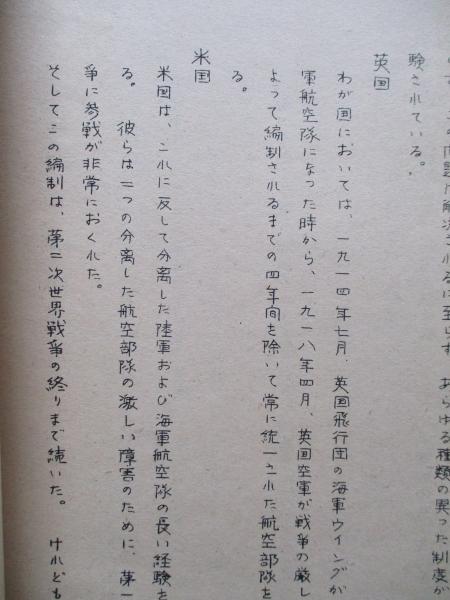 解決されるに至らず、あらゆる種類の異った制度が
験されている。
英国
わが国においては、一九一四年七月、英国飛行団の海軍ウイングが
軍航空隊になった時から、一九一八年四月、英国空軍が戦争の厳し
よって編制されるまでの四年间を除いて常に統一された航空部隊を
る。
米国
米国は、これに反して分離した陸軍および海軍航空隊の長い経験を
る。彼らは二つの分離した航空部隊の激しい障害のために、第一
争に参戦が非常におくれた。
そしてこの編制は、第二次世界戦争の終りまで続いた。けれども